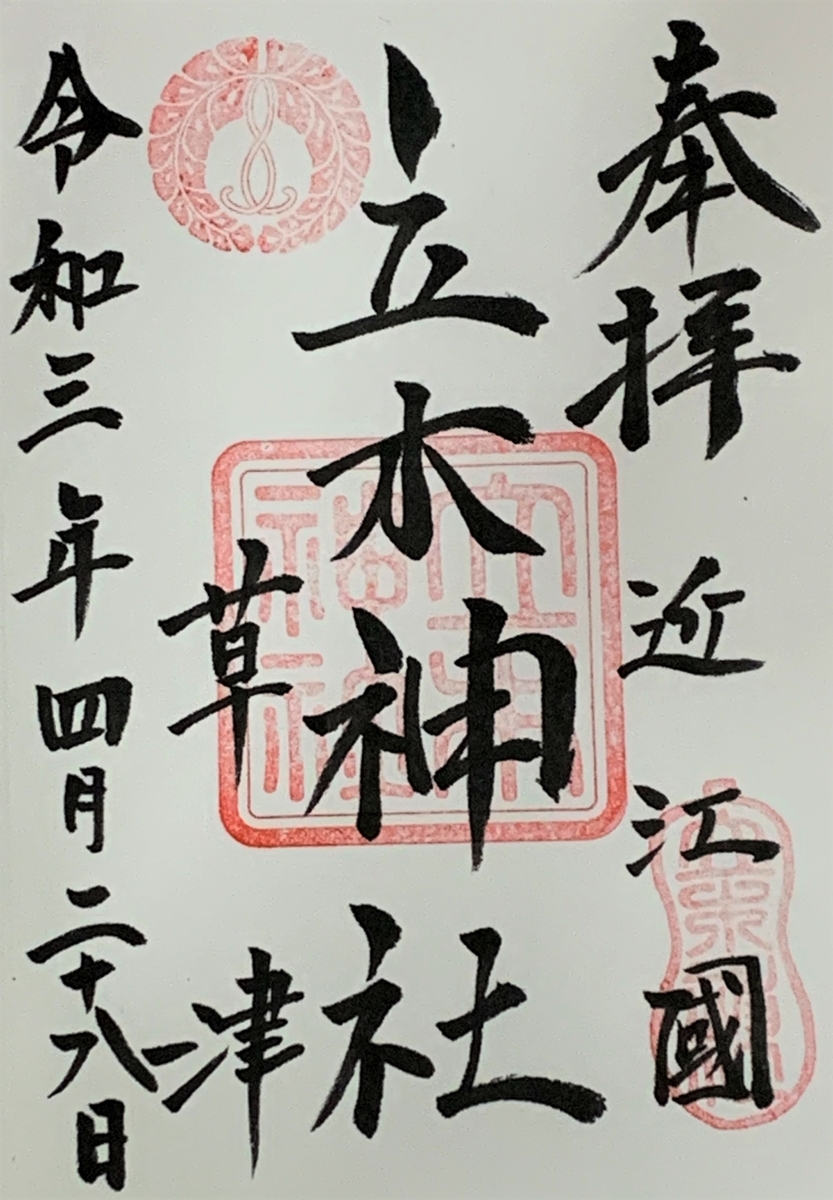 奉拝
近江國
立木神社
草津
令和三年四月二十八日
立木神社